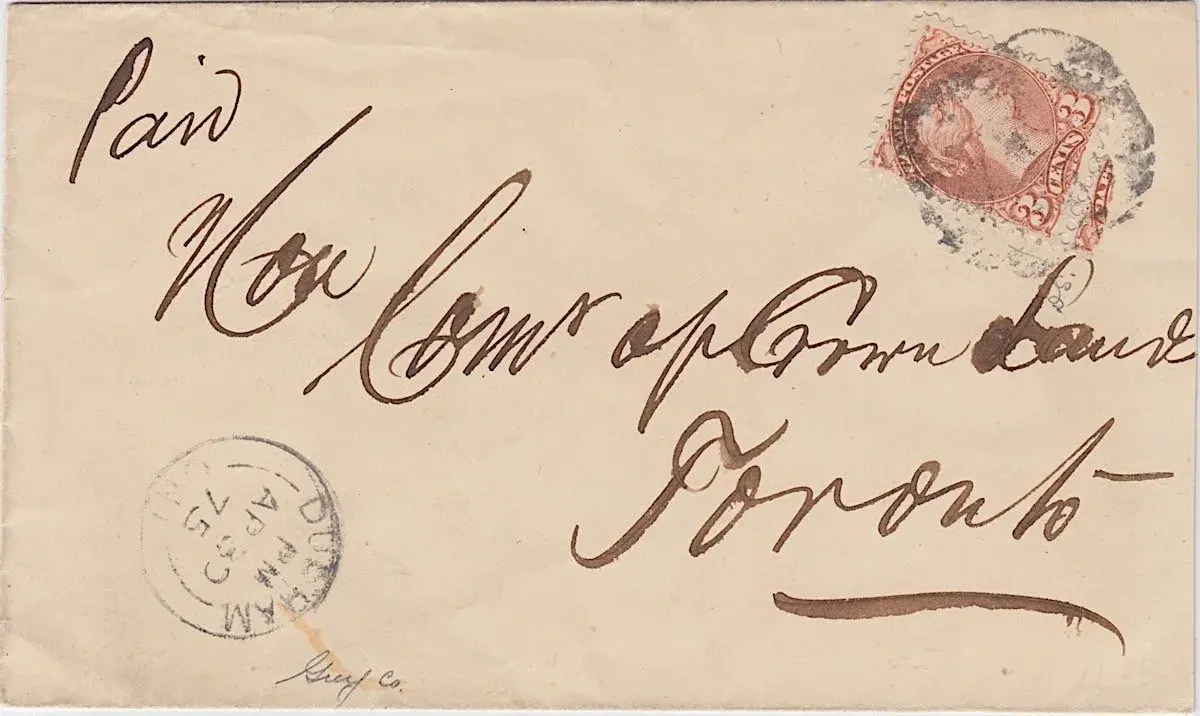 Paid
Hon Comr of Crown Land
Toronto
CANADA POSTAGE
3 CENTS 3
DURHAM
PM
AP 30
75
Grey Co.